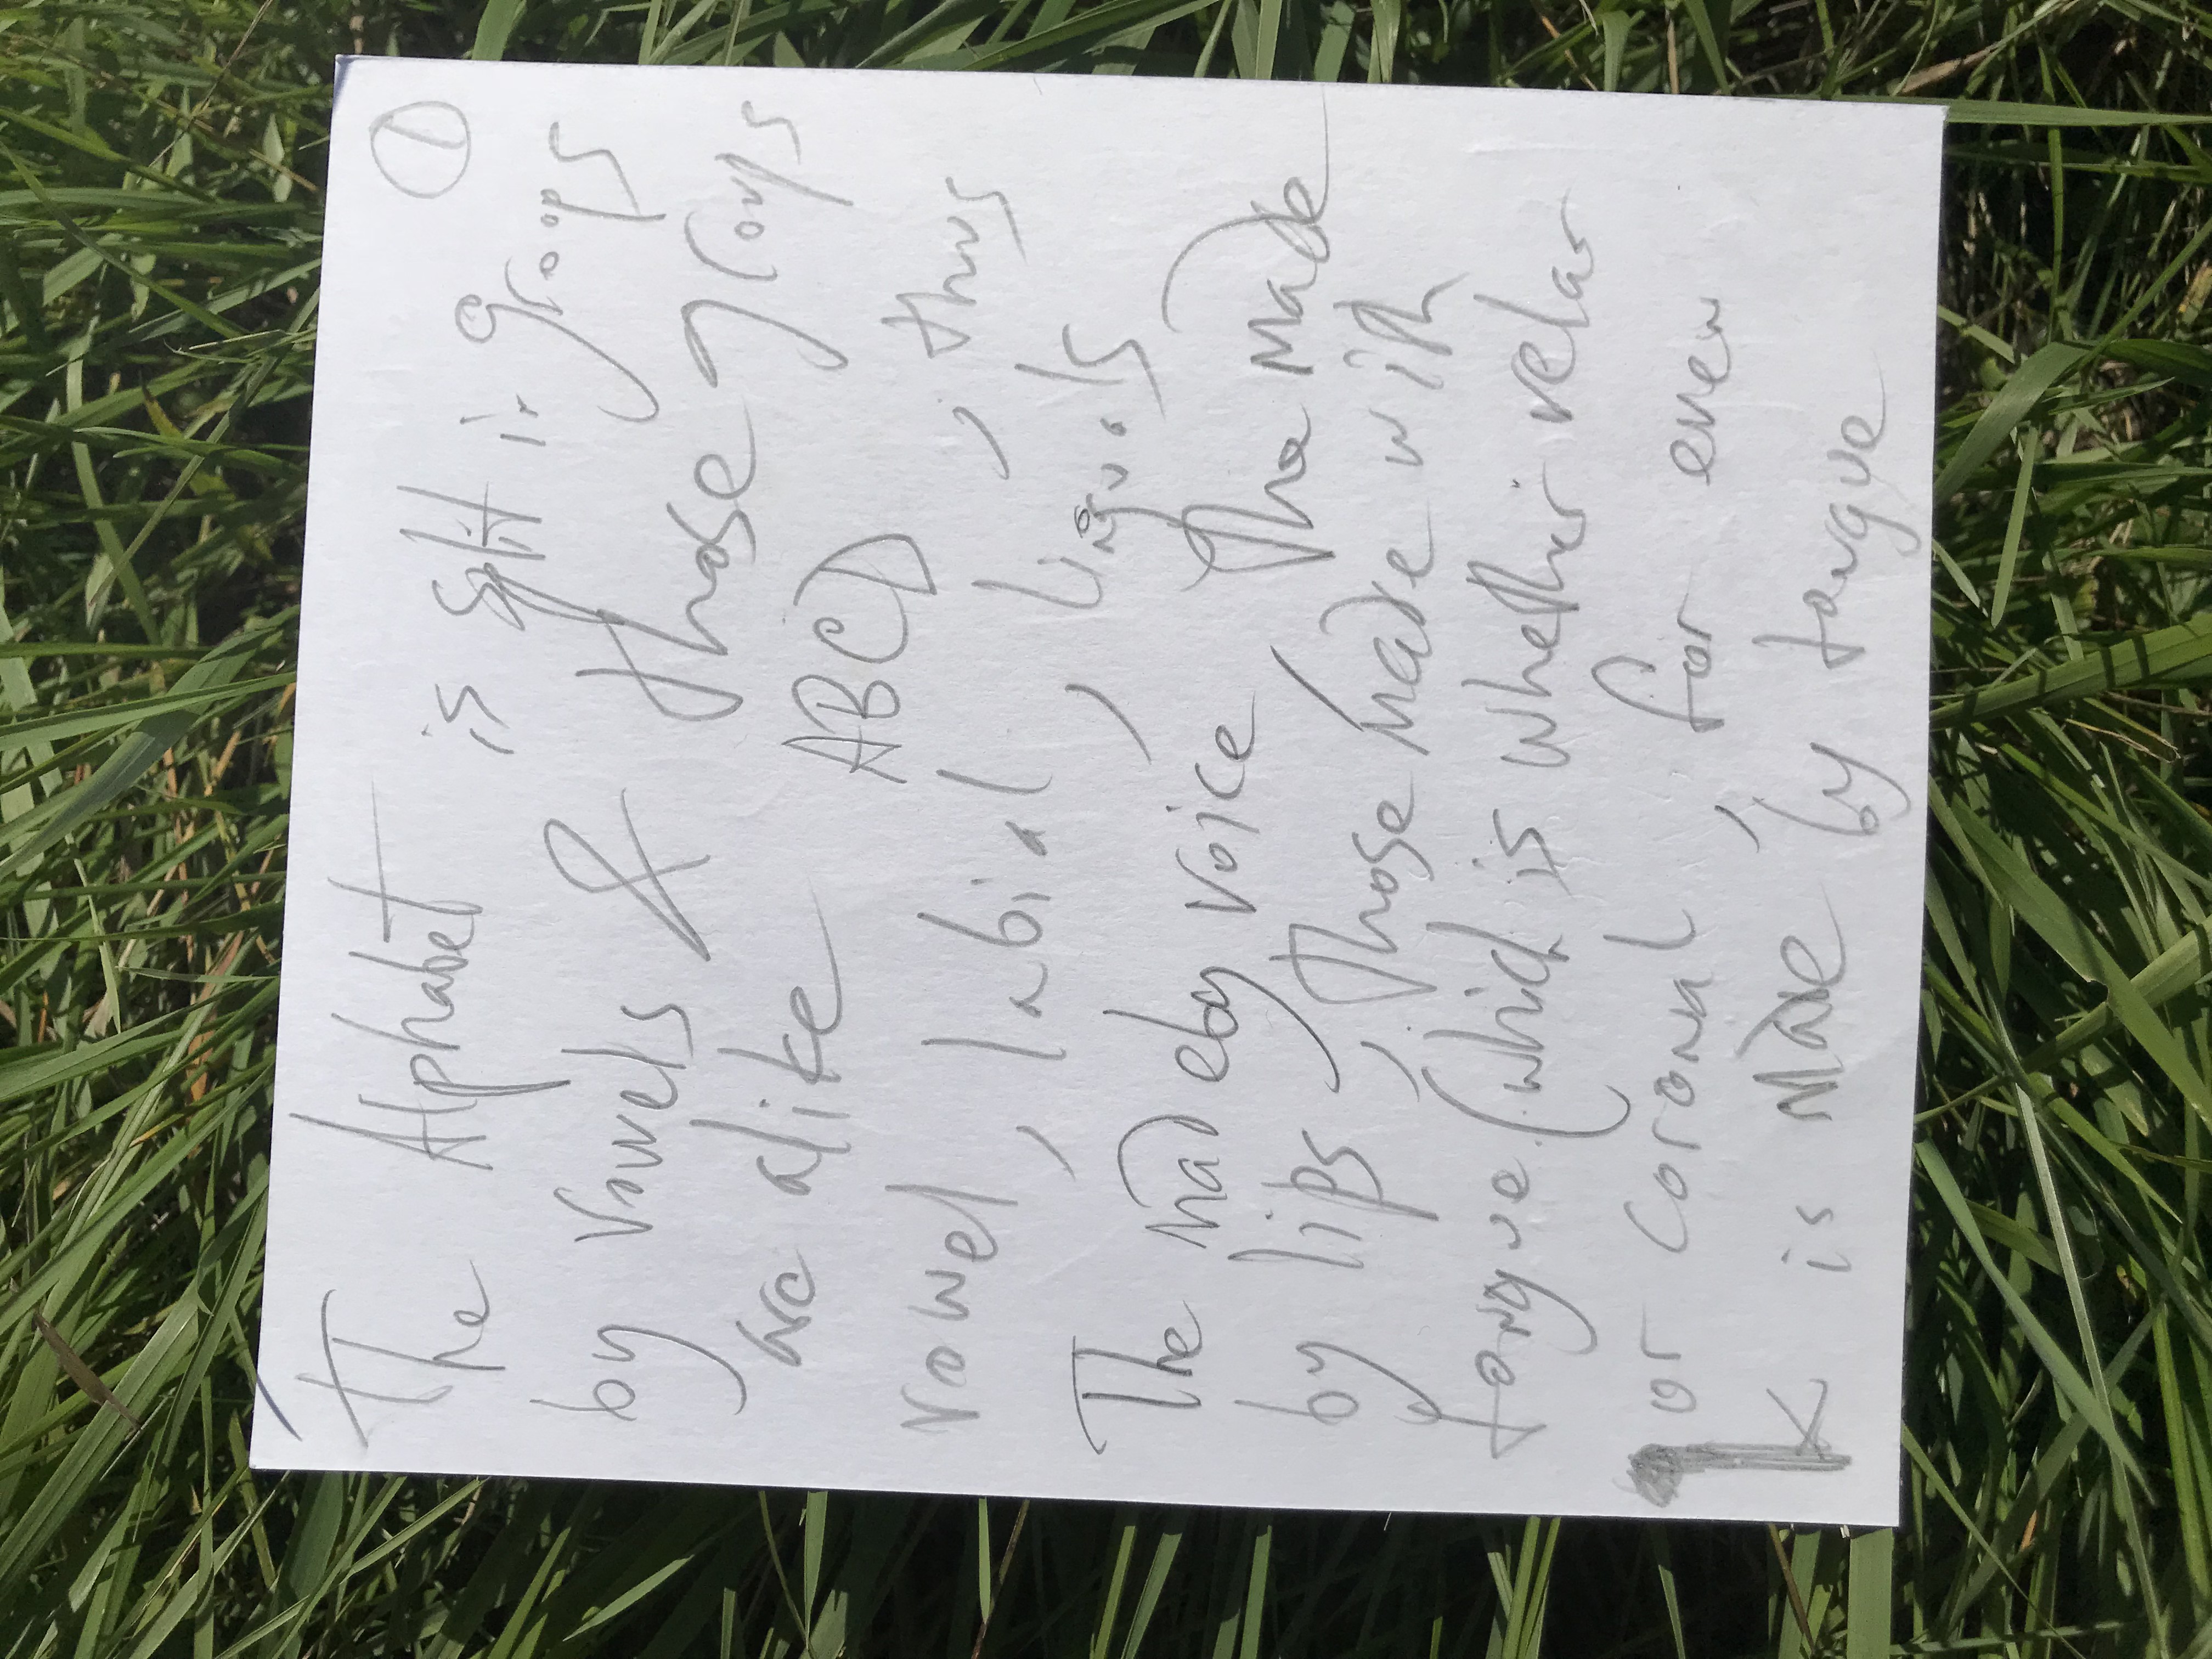 ①
The Alphabet is split in groops
by vowels & those groups
are alike ABCD, thus
vowel, labial, linguals
The made by voice, The made
by lips, those made with
tongue (which is whether velar
or coronal, for even
K is made by tongue